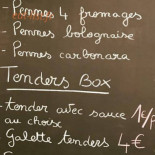 - Pennes 4 fromages
- Pennes bolognaise
- Pennes carbonara
Tenders Box
- tender avec sauce 1€/p
au choix
Galette tenders 4€